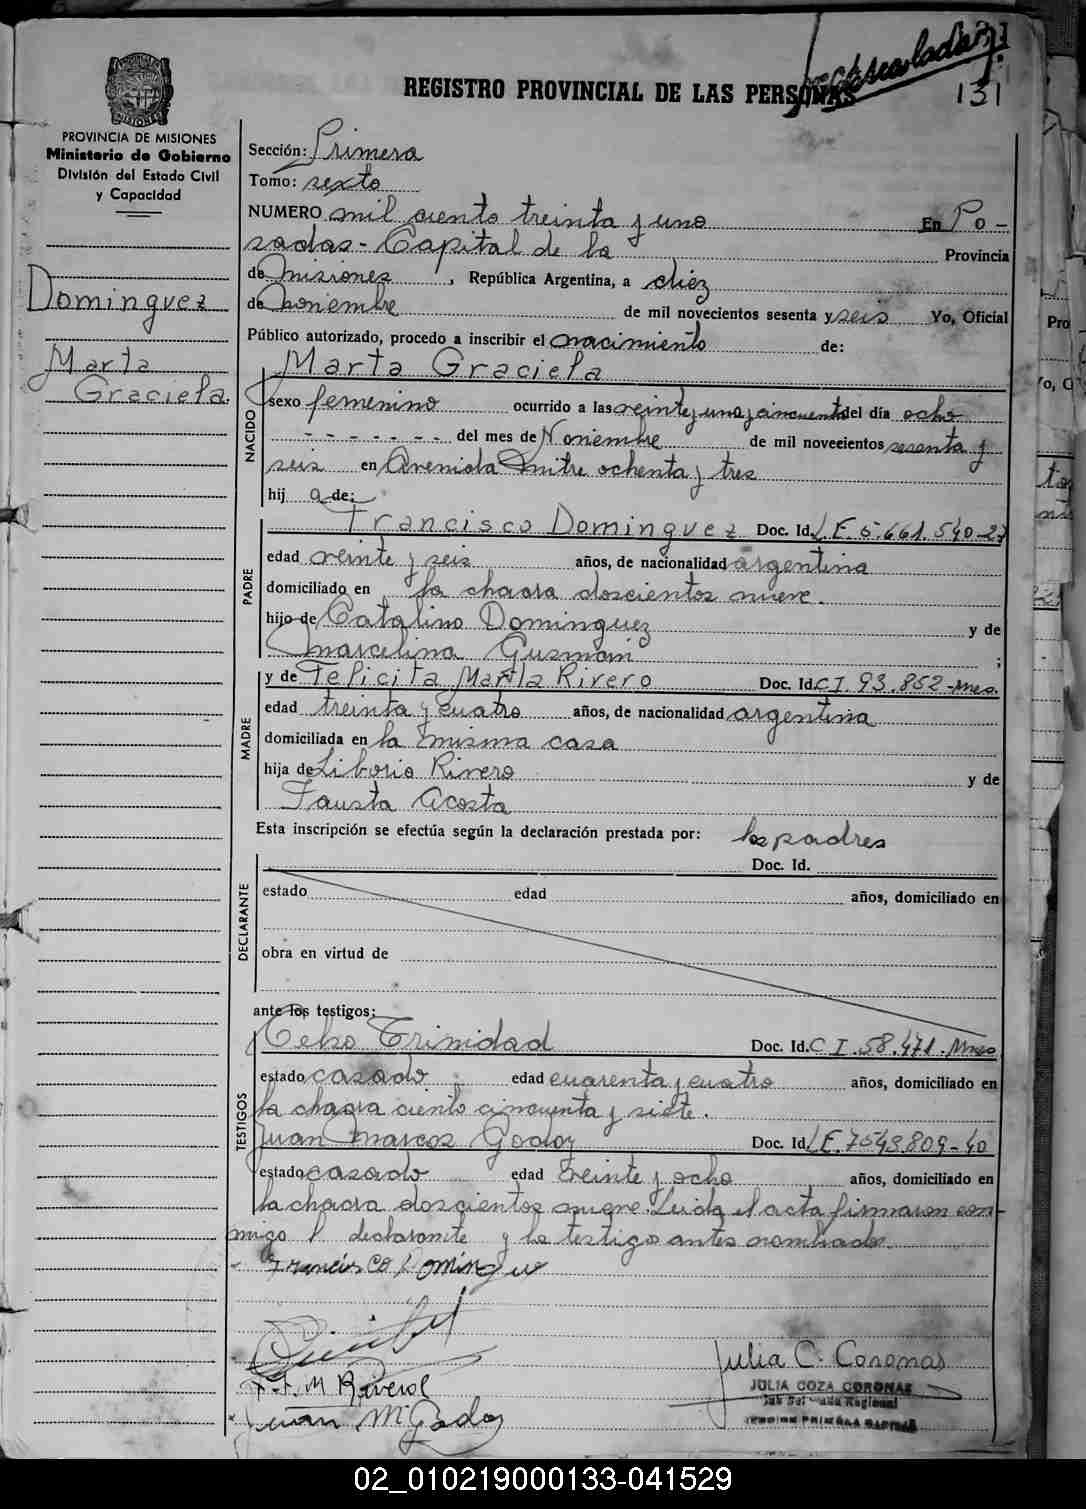 REGISTRO PROVINCIAL DE LAS PERSONAS
131
PROVINCIA DE MISIONES
Ministerio de Gobierno
División del Estado Civil
y Capacidad
Dominguez
Marta
Graciela.
Sección: Primera
Tomo: sexto
NUMERO mil ciento treinta y uno En Po-
sadas - Capital de la Provincia
de Misiones, República Argentina, a diez
de noviembre de mil novecientos sesenta y seis Yo, Oficial
Público autorizado, procedo a inscribir el nacimiento de:
Marta Graciela
NACIDO
sexo femenino ocurrido a las veinte y una y cincuenta del día ocho
- - - - - - - del mes de Noviembre de mil novecientos sesenta y
seis en Avenida Mitre ochenta y tres
hij a de:
PADRE
Francisco Dominguez Doc. Id. L.E. 5.661.540-27
edad veinte y seis años, de nacionalidad argentina
domiciliado en la chacra doscientos nueve.
hijo de Catalino Dominguez y de
Marcelina Guzman ;
MADRE
y de Felicita Marta Rivero Doc. Id. C I. 93.852-Mnes.
edad treinta y cuatro años, de nacionalidad argentina
domiciliada en la misma casa
hija de Liborio Rivero y de
Fausta Acosta
Esta inscripción se efectúa según la declaración prestada por: los padres
Doc. Id.
DECLARANTE
estado edad años, domiciliado en
obra en virtud de
ante los testigos:
TESTIGOS
Celso Trinidad Doc. Id. C I. 58.471. Mnes
estado casado edad cuarenta y cuatro años, domiciliado en
la chacra ciento cincuenta y siete.
Juan Marcos Godoy Doc. Id. L E. 7548.809-40
estado casado edad veinte y ocho años, domiciliado en
la chacra doscientos nueve. Leida el acta firmaron con-
migo l declarante y los testigos antes nombrados.
Francisco Domingue
F. M Riverol
Juan M Godoy
Julia C. Coronas
JULIA COZA CORONAS
02_010219000133-041529